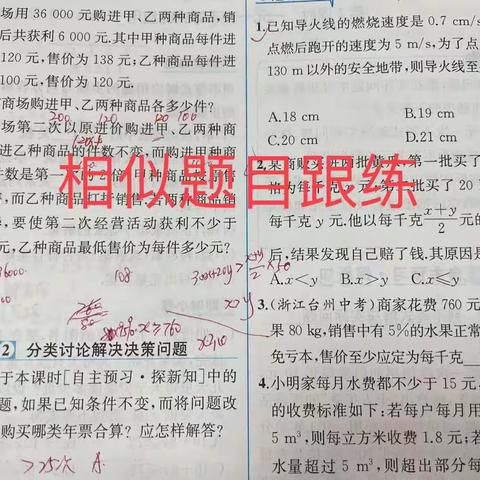 场用 36 000 元购进甲、乙两种商品,销
后共获利 6 000 元.其中甲种商品每件进
120 元,售价为 138 元;乙种商品每件进
100 元,售价为 120 元.
商场购进甲、乙两种商品各多少件?
200 120 120 100
场第二次以原进价购进甲、乙两种商
进乙种商品的件数不变,而购进甲种商
件数是第一次的 2 倍,甲种商品按原售
,而乙种商品打折销售.若两种商品销
,要使第二次经营活动获利不少于
元,乙种商品最低售价为每件多少元?
相似题目跟练
36000 108
2 分类讨论解决决策问题
于本课时[自主预习·探新知]中的
题,如果已知条件不变,而将问题改
购买哪类年票合算?应怎样解答?
>25次 A
1.已知导火线的燃烧速度是 0.7 cm/s
点燃后跑开的速度为 5 m/s,为了点
130 m 以外的安全地带,则导火线至
A.18 cm B.19 cm
C.20 cm D.21 cm
2.某商贩买进两批黄瓜,第一批买了
格为每千克 x 元;第二批买了 20
每千克 y 元.他以每千克 x+y/2 元的
后,结果发现自己赔了钱.其原因是
A.x<y B.x>y C.x≤y
x>y
3.(浙江台州中考)商家花费 760 元
果 80 kg,销售中有 5%的水果正常
免亏本,售价至少应定为每千克
4.小明家每月水费都不少于 15 元,
的收费标准如下:若每户每月用
5 m³,则每立方米收费 1.8 元;若
水量超过 5 m³,则超出部分每